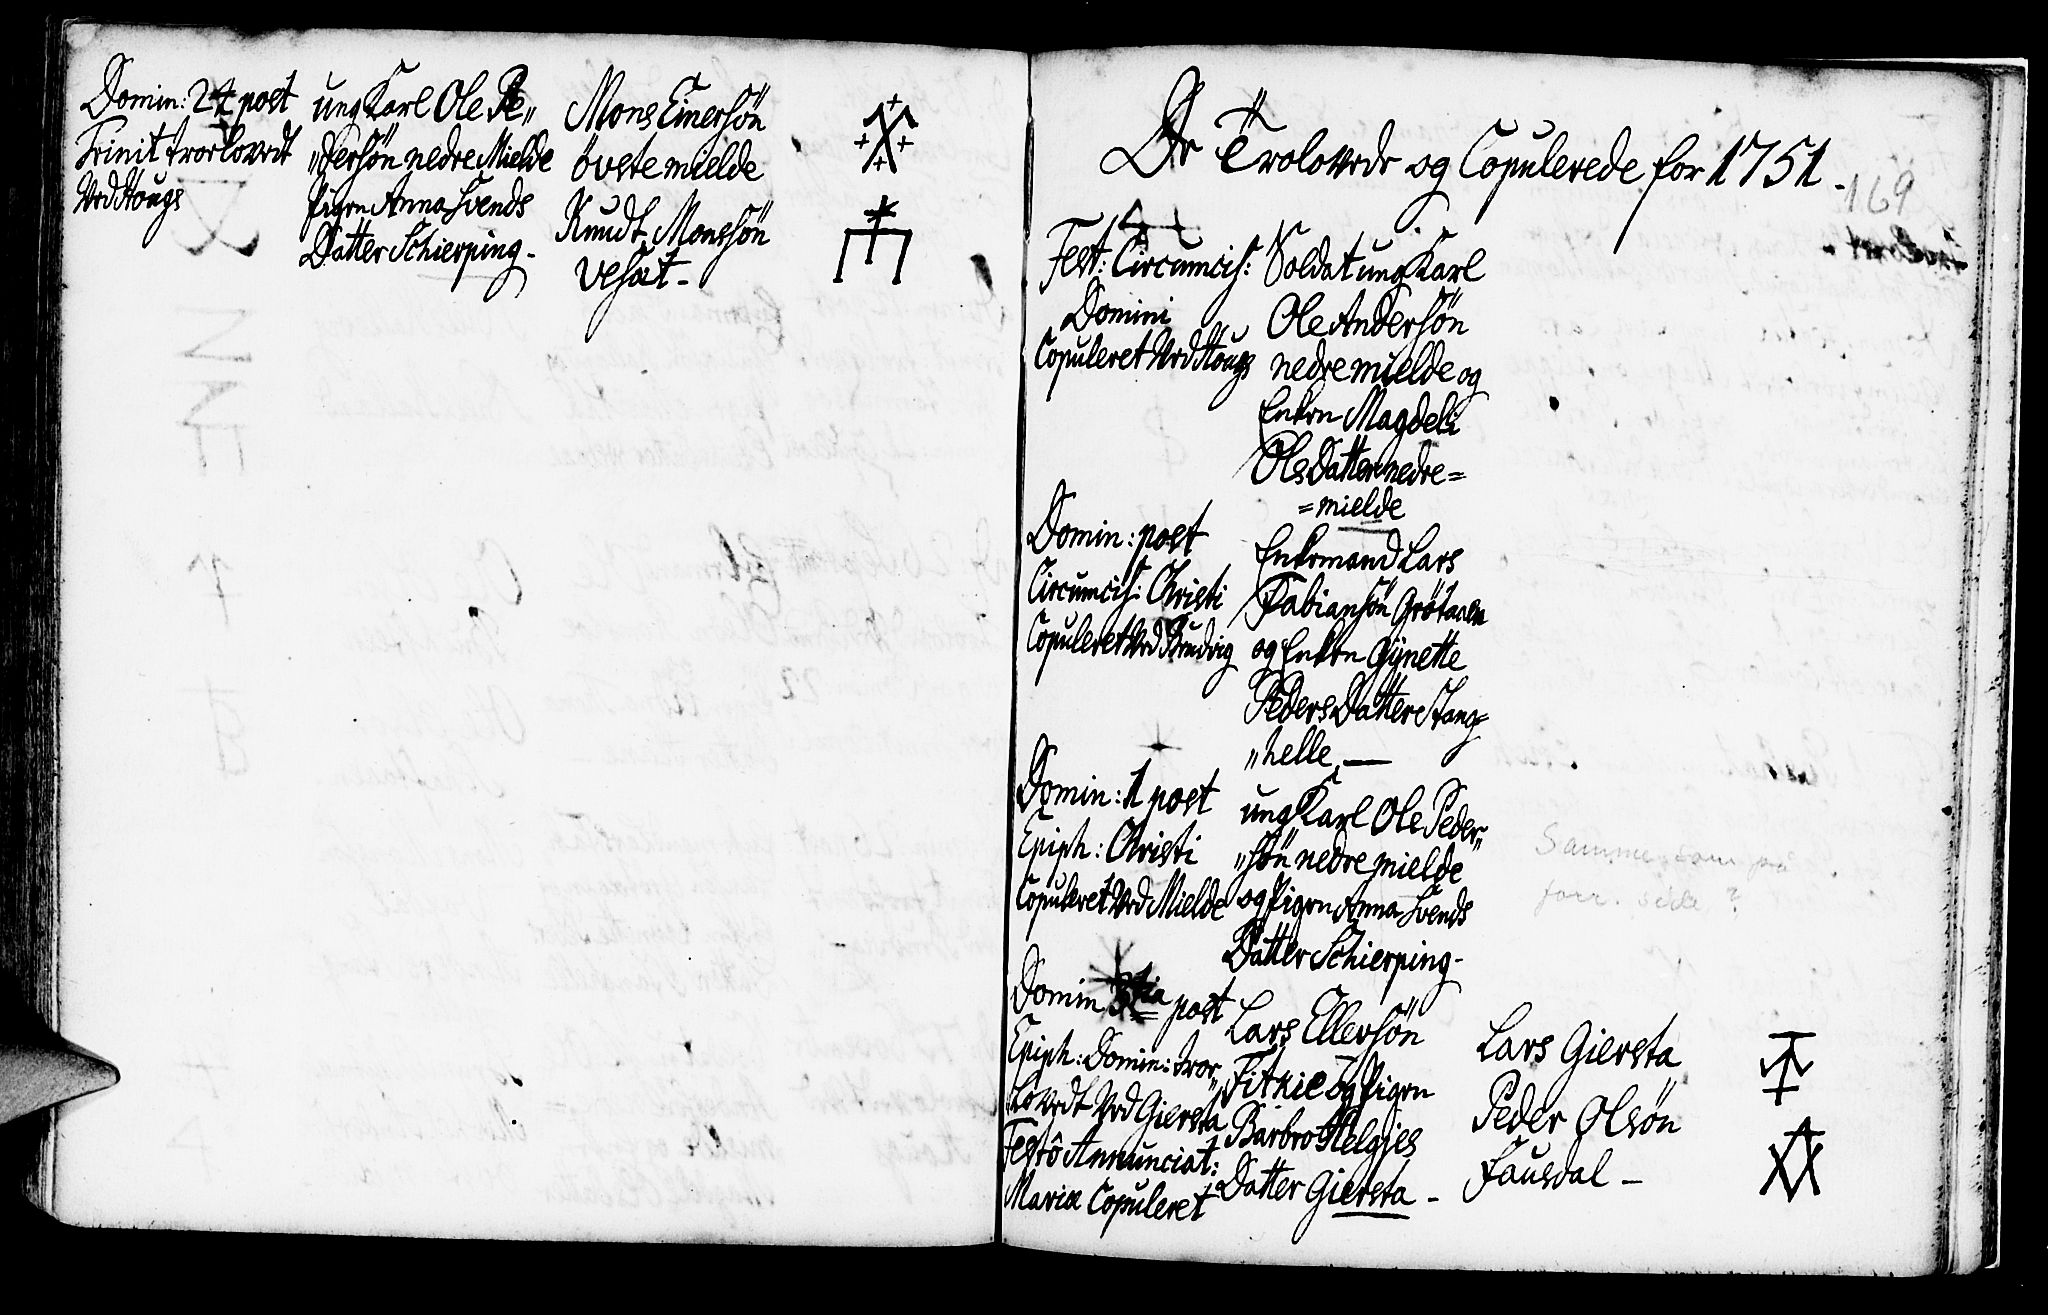 Domin: 24 post
Trinit troelovedt
Ved Hougs
ung Karl Ole Pe„
„dersön nedre Mielde
Pigen Anna Svends
Datter Schierping -
Mons Einersön
övste mielde
Knudt Monssön
Vesæt -
De Trolovede og Copulerede for 1751.
169
Fest: Circumcis:
Domini
Copuleret Ved Hougs
Soldat ung Karl
Ole Andersön
nedre mielde og
Enken Magdeli
Ols Datter nedre=
=mielde
Domin: post
Circumcis: Christi
Copuleret Ved Brudvig
Enkemand Lars
Fabiansön Grötaaen
og Enken Gÿnette
Peders Datter Stang=
„helle —
Domin: 1 post
Epiph: Christi
Copuleret Ved Mielde
ung Karl Ole Peder„
„sön nedre mielde
og Pigen Anna Svends
Datter Schierping -
Samme som på
forr. side?
Domin 3tia post
Epiph: Domin: troe„
lovedt Ved Giersta
Festô Annunciat:
Mariæ Copuleret
Lars Ellersön
Fitkie og Pigen
Barbro Helgies
Datter Giersta -
Lars Giersta
Peder Olsön
Fausdal -